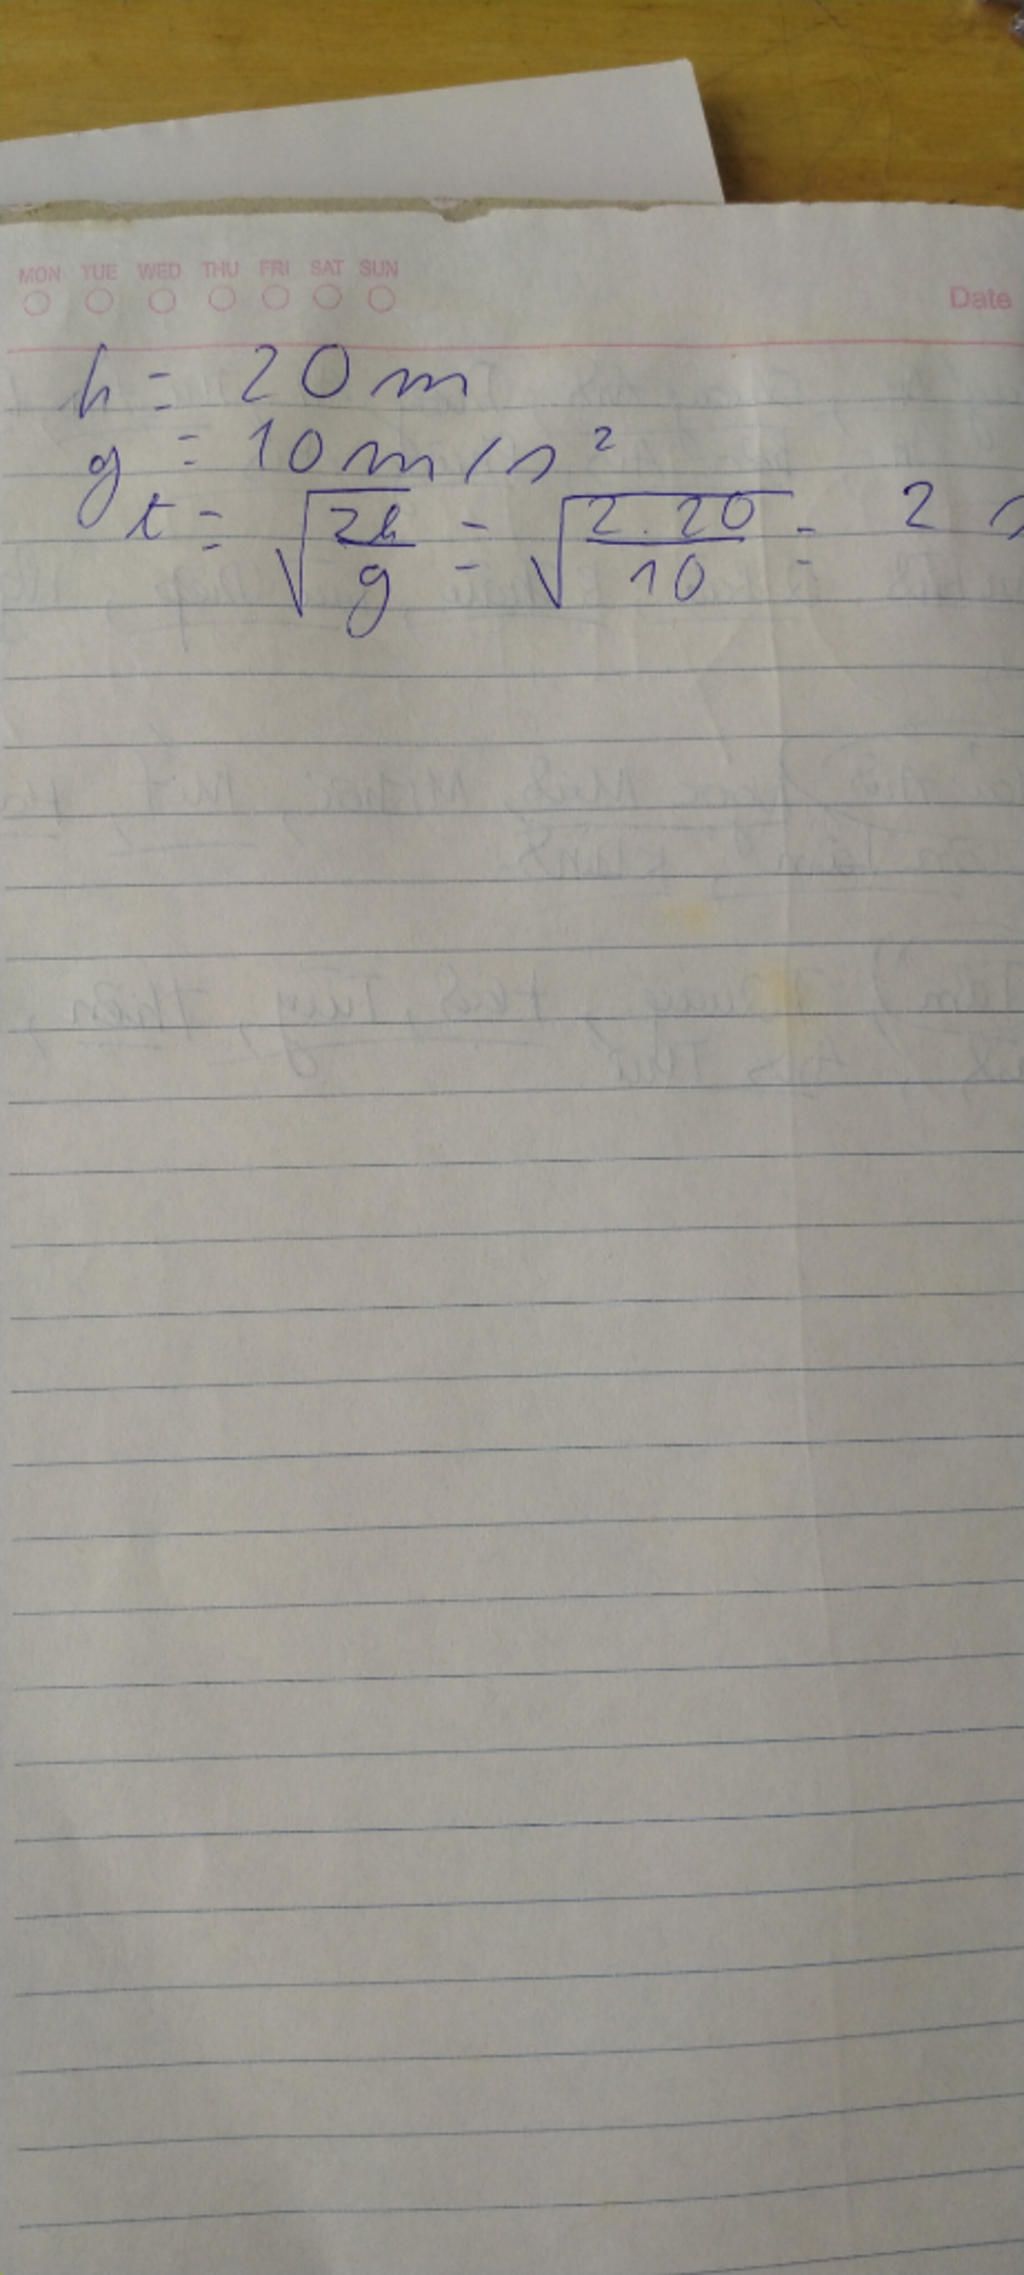 MON TUE WED THU FRI SAT SUN
Date
h = 20 m
g = 10 m/s²
t = √(2h/g) = √(2.20/10) = 2 s